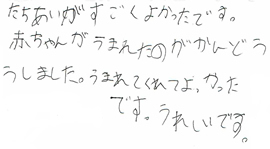 たちあいがすごくよかったです。
赤ちゃんがうまれたのがかんどう
うしました。うまれてくれてよ、かった
です。うれしいです。